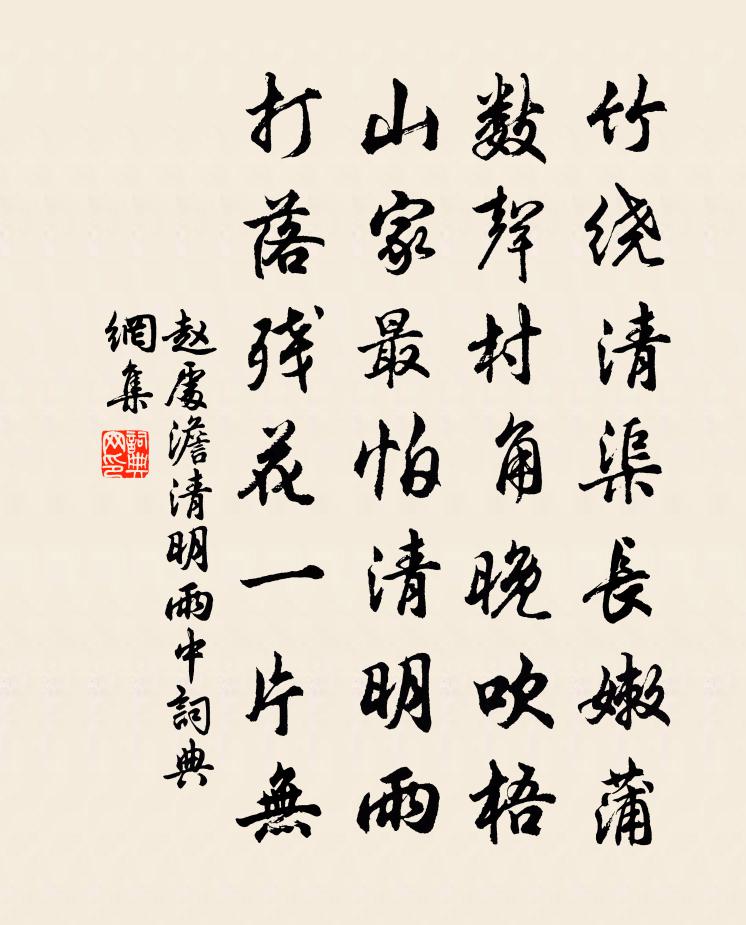 竹绕清渠長嫩蒲
數聲村角晚吹梧
山家最怕清明雨
打落残花一片無
赵處澹清明雨中詞典
網集
詞典
网印